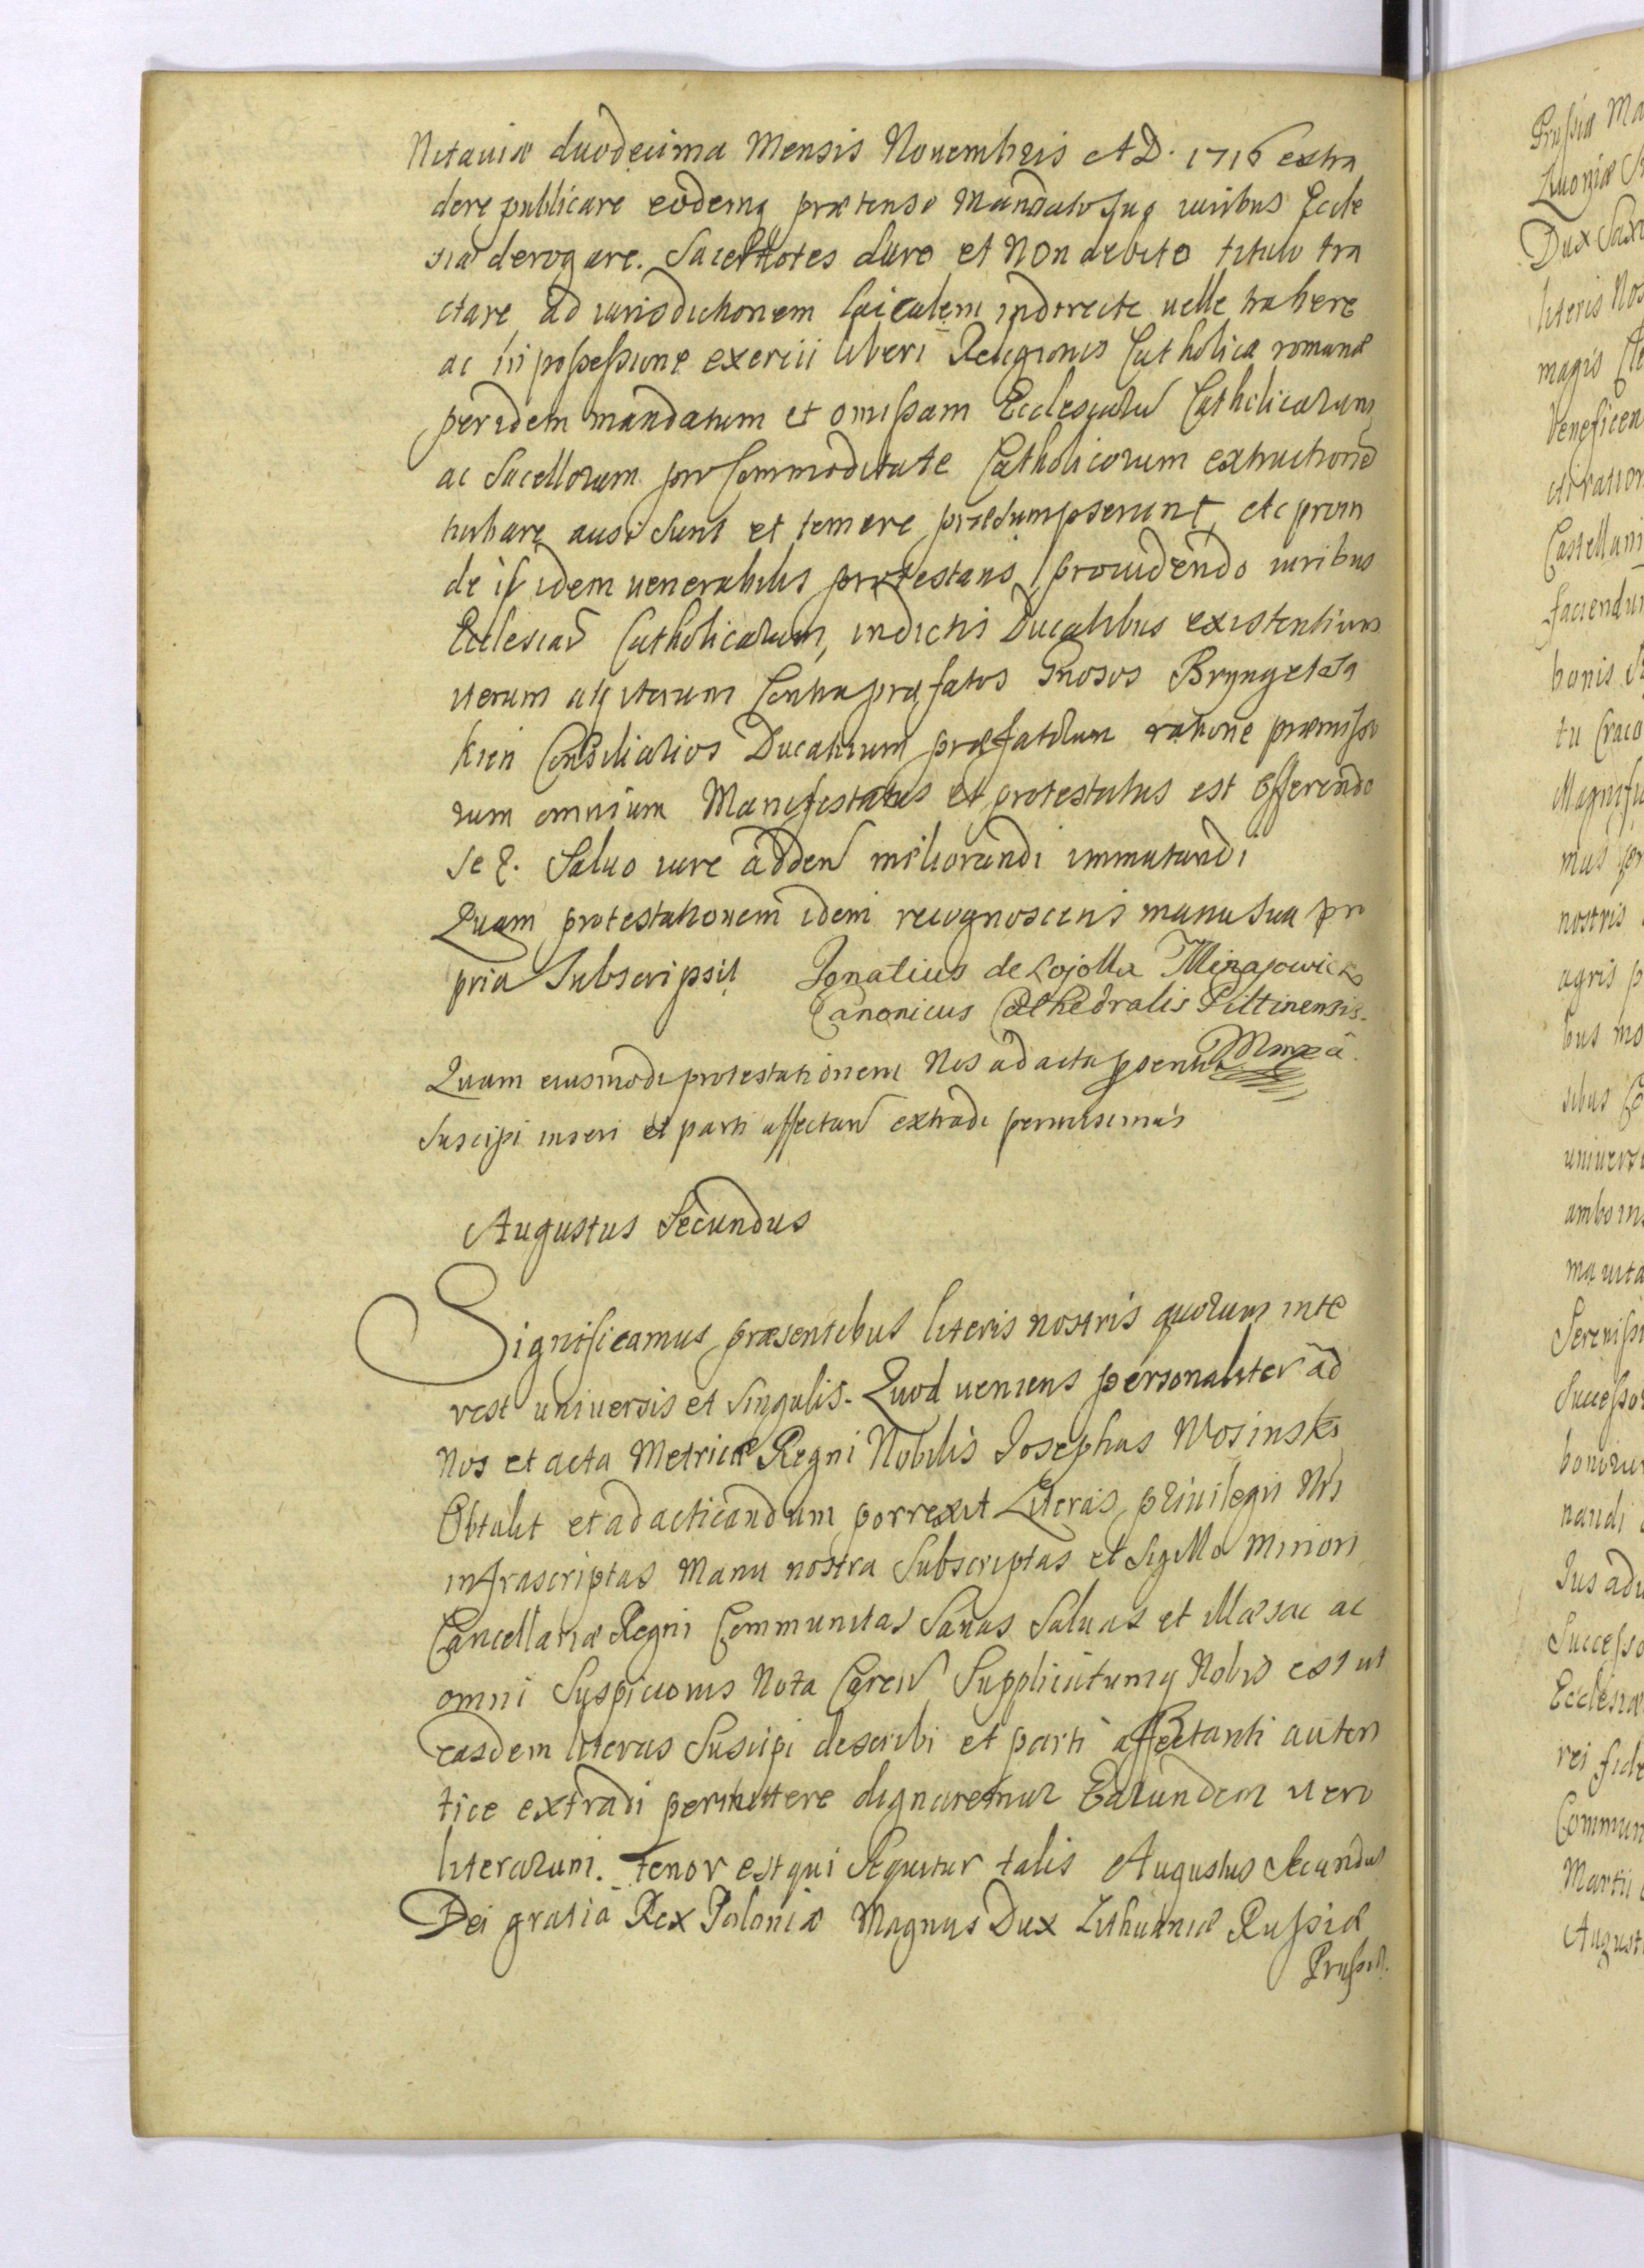 Mitaviæ duodecima Mensis Novembris AD. 1716 extra
dere publicare eodemq prætenso Mandato suo iuribus Eccle
siæ derogare. Sacerdotes duro et non debito titulo tra
ctare ad iurisdictionem laicalem indirecte uelle trahere
ac in possessione exercii liberi Religionis Catholicæ romanæ
per idem mandatum et omissam Ecclesiaru Catholicarum
ac Sacellorum pro Commoditate Catholicorum extructione
turbare ausi sunt et temere præsumpserunt, etc proin
de is idem uenerabilis protestans, prouidendo iuribus
Ecclesiar Catholicarum, in dictis Ducatibus existentium
iterum atq iterum Contra præfatos Gnosos Bryngk
kien Consiliarios Ducatuum præfatorum ratione præmisso
rum omnium Manifestatus et protestatus est Offerendo
se &. Saluo iure adden meliorandi immutandi
Quam protestationem idem recognoscens manu sua pro
pria Subscripsit Ignatius de Lojolla
Canonicus Cathedralis Piltinensis.
Quam eiusmodi protestationem Nos ad acta psentia Mmpa.
suscipi inseri et parti affectan extradi permisimus
Augustus Secundus
Significamus præsentibus literis nostris quorum inte
rest universis et singulis. Quod ueniens personaliter ad
Nos et acta Metricæ Regni Nobilis Josephus Wosinski
Obtulit et ad acticandum porrexit Literas priuilegii Nri
infrascriptas Manu nostra Subscriptas et Sigillo Minori
Cancellariæ Regni Communitas Sanas Saluas et illæsas ac
omni Suspicionis Nota Caren Supplicatumq Nobis est ut
easdem literas Suscipi describi et parti affectanti auten
tice extradi permittere dignaremur Earundem uero
literarum. tenor est qui sequitur talis Augustus Secundus
Dei gratia Rex Poloniæ Magnus Dux Lithuaniæ Russiæ
Prussiæ.
Prussiæ Ma
Liuoniæ S
Dux Saxo
literis Nos
magis Cle
beneficen
eti ration
Castellani
faciendu
bonis S
tu Craco
Magnifi
mus per
nostris
agris p
bus mo
sibus
univers
ambo in
ma uita
Sereniss
Successo
bonoru
nandi
Jus adu
Successo
Ecclesiæ
rei fide
Commun
Martii
August